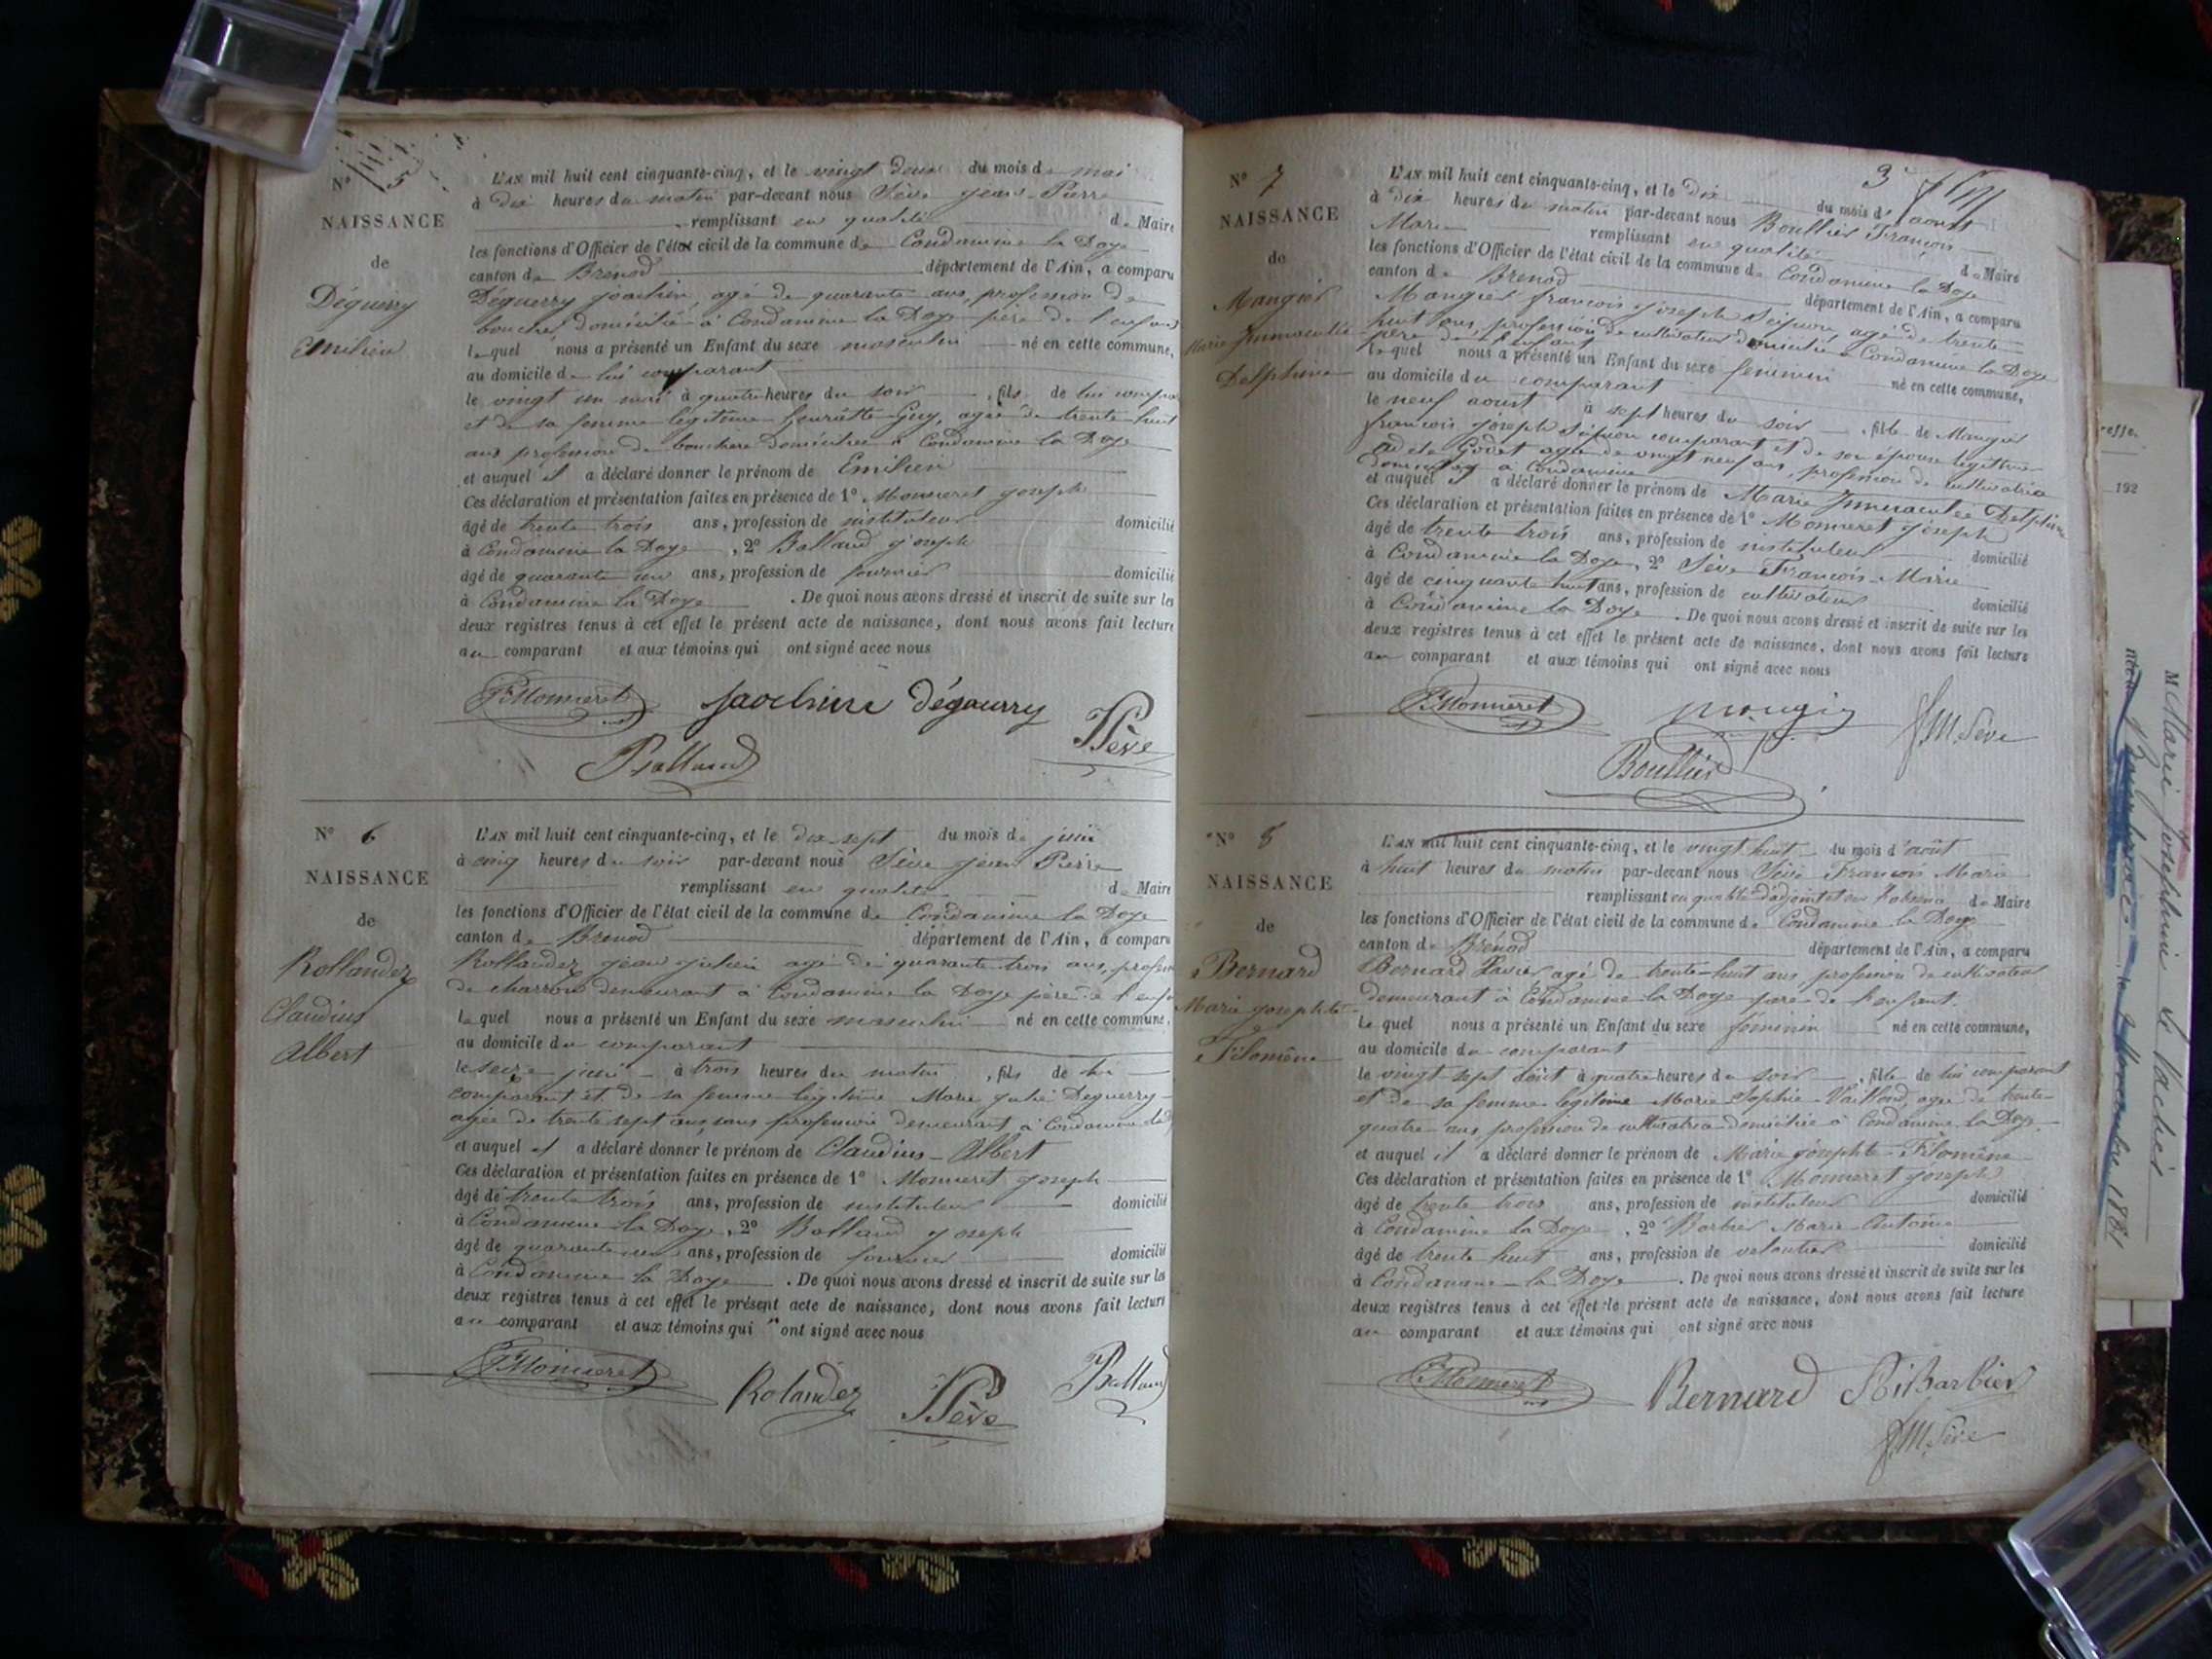 N° 5
NAISSANCE
de
Déguerry
Emilien
L'AN mil huit cent cinquante-cinq, et le vingt deux du mois de mai
à dix heures du matin par-devant nous Sève jean-Pierre
remplissant en qualité de Maire
les fonctions d'Officier de l'état civil de la commune de Condamine la Doye
canton de Brenod département de l'Ain, a comparu
Déguerry joachim, agé de quarante ans, profession de
boucher, domicilié à Condamine la Doye père de l'enfant
lequel nous a présenté un Enfant du sexe masculin né en cette commune,
au domicile de lui comparant
le vingt un mai à quatre heures du soir, fils de lui compa
et de sa femme légitime Guy, agée de trente-huit
ans profession de bouchere domiciliée à Condamine la Doye
et auquel il a déclaré donner le prénom de Emilien
Ces déclaration et présentation faites en présence de 1° Monneret joseph
âgé de trente trois ans, profession de instituteur domicilié
à Condamine la Doye, 2° Balland joseph
âgé de quarante un ans, profession de domicilié
à Condamine la Doye. De quoi nous avons dressé et inscrit de suite sur les
deux registres tenus à cet effet le présent acte de naissance, dont nous avons fait lecture
au comparant et aux témoins qui ont signé avec nous
Monneret Déguerry
Sève
Balland
N° 6
NAISSANCE
de
Rollandez
Claudius
Albert
L'AN mil huit cent cinquante-cinq, et le dix sept du mois de juin
à cinq heures du soir par-devant nous Sève jean Pierre
remplissant en qualité de Maire
les fonctions d'Officier de l'état civil de la commune de Condamine la Doye
canton de Brenod département de l'Ain, a comparu
Rollandez jean julien agé de quarante trois ans, profess
de charron demeurant à Condamine la Doye père de l'enfa
lequel nous a présenté un Enfant du sexe masculin né en cette commune,
au domicile du comparant
le seize juin à trois heures du matin, fils de lui
comparant et de sa femme légitime Marie julie Deguerry
agée de trente sept ans, sans profession demeurant à Condamine la D
et auquel il a déclaré donner le prénom de Claudius-Albert
Ces déclaration et présentation faites en présence de 1° Monneret joseph
âgé de trente trois ans, profession de instituteur domicilié
à Condamine la Doye, 2° Balland joseph
âgé de quarante un ans, profession de domicilié
à Condamine la Doye. De quoi nous avons dressé et inscrit de suite sur les
deux registres tenus à cet effet le présent acte de naissance, dont nous avons fait lecture
au comparant et aux témoins qui ont signé avec nous
Monneret Rolandez Sève Balland
3
N° 7
NAISSANCE
de
Mangier
Marie Immaculée
Delphine
L'AN mil huit cent cinquante-cinq, et le dix du mois d'aoust
à dix heures du matin par-devant nous Boullier François
Marie remplissant en qualité de Maire
les fonctions d'Officier de l'état civil de la commune de Condamine la Doye
canton de Brenod département de l'Ain, a comparu
Mangier françois joseph Scipion, agé de trente
huit ans, profession de cultivateur domicilié à Condamine la Doye
père de l'enfant
lequel nous a présenté un Enfant du sexe féminin né en cette commune,
au domicile du comparant
le neuf aoust à sept heures du soir, fille de Mangier
françois joseph Scipion comparant et de son épouse légitime
Adèle Godet agée de vingt neuf ans, profession de cultivatrice
domiciliée à Condamine
et auquel il a déclaré donner le prénom de Marie Immaculée Delphine
Ces déclaration et présentation faites en présence de 1° Monneret joseph
âgé de trente trois ans, profession de instituteur domicilié
à Condamine la Doye, 2° Sève François-Marie
âgé de cinquante huit ans, profession de cultivateur domicilié
à Condamine la Doye. De quoi nous avons dressé et inscrit de suite sur les
deux registres tenus à cet effet le présent acte de naissance, dont nous avons fait lecture
au comparant et aux témoins qui ont signé avec nous
Monneret f.M. Sève
Boullier
N° 8
NAISSANCE
de
Bernard
Marie josephte
Filomène
L'AN mil huit cent cinquante-cinq, et le vingt huit du mois d'août
à huit heures du matin par-devant nous Sève François Marie
remplissant en qualité d'adjoint et en l'absence de Maire
les fonctions d'Officier de l'état civil de la commune de Condamine la Doye
canton de Brénod département de l'Ain, a comparu
Bernard Xavier agé de trente-huit ans, profession de cultivateur
demeurant à Condamine la Doye pere de l'enfant.
Lequel nous a présenté un Enfant du sexe féminin né en cette commune,
au domicile du comparant
le vingt sept août à quatre heures du soir, fille de lui comparant
et de sa femme légitime Marie Sophie Vaillond, agée de trente-
quatre ans, profession de cultivatrice domiciliée à Condamine la Doye.
et auquel il a déclaré donner le prénom de Marie josephte-Filomène
Ces déclaration et présentation faites en présence de 1° Monneret joseph
âgé de trente trois ans, profession de instituteur domicilié
à Condamine la Doye, 2° Barbier Marie-Antoine
âgé de trente huit ans, profession de domicilié
à Condamine la Doye. De quoi nous avons dressé et inscrit de suite sur les
deux registres tenus à cet effet le présent acte de naissance, dont nous avons fait lecture
au comparant et aux témoins qui ont signé avec nous
Monneret Bernard Barbier
f.M. Sève
192
M Marie Joséphine
née à le 2 Novembre 1881